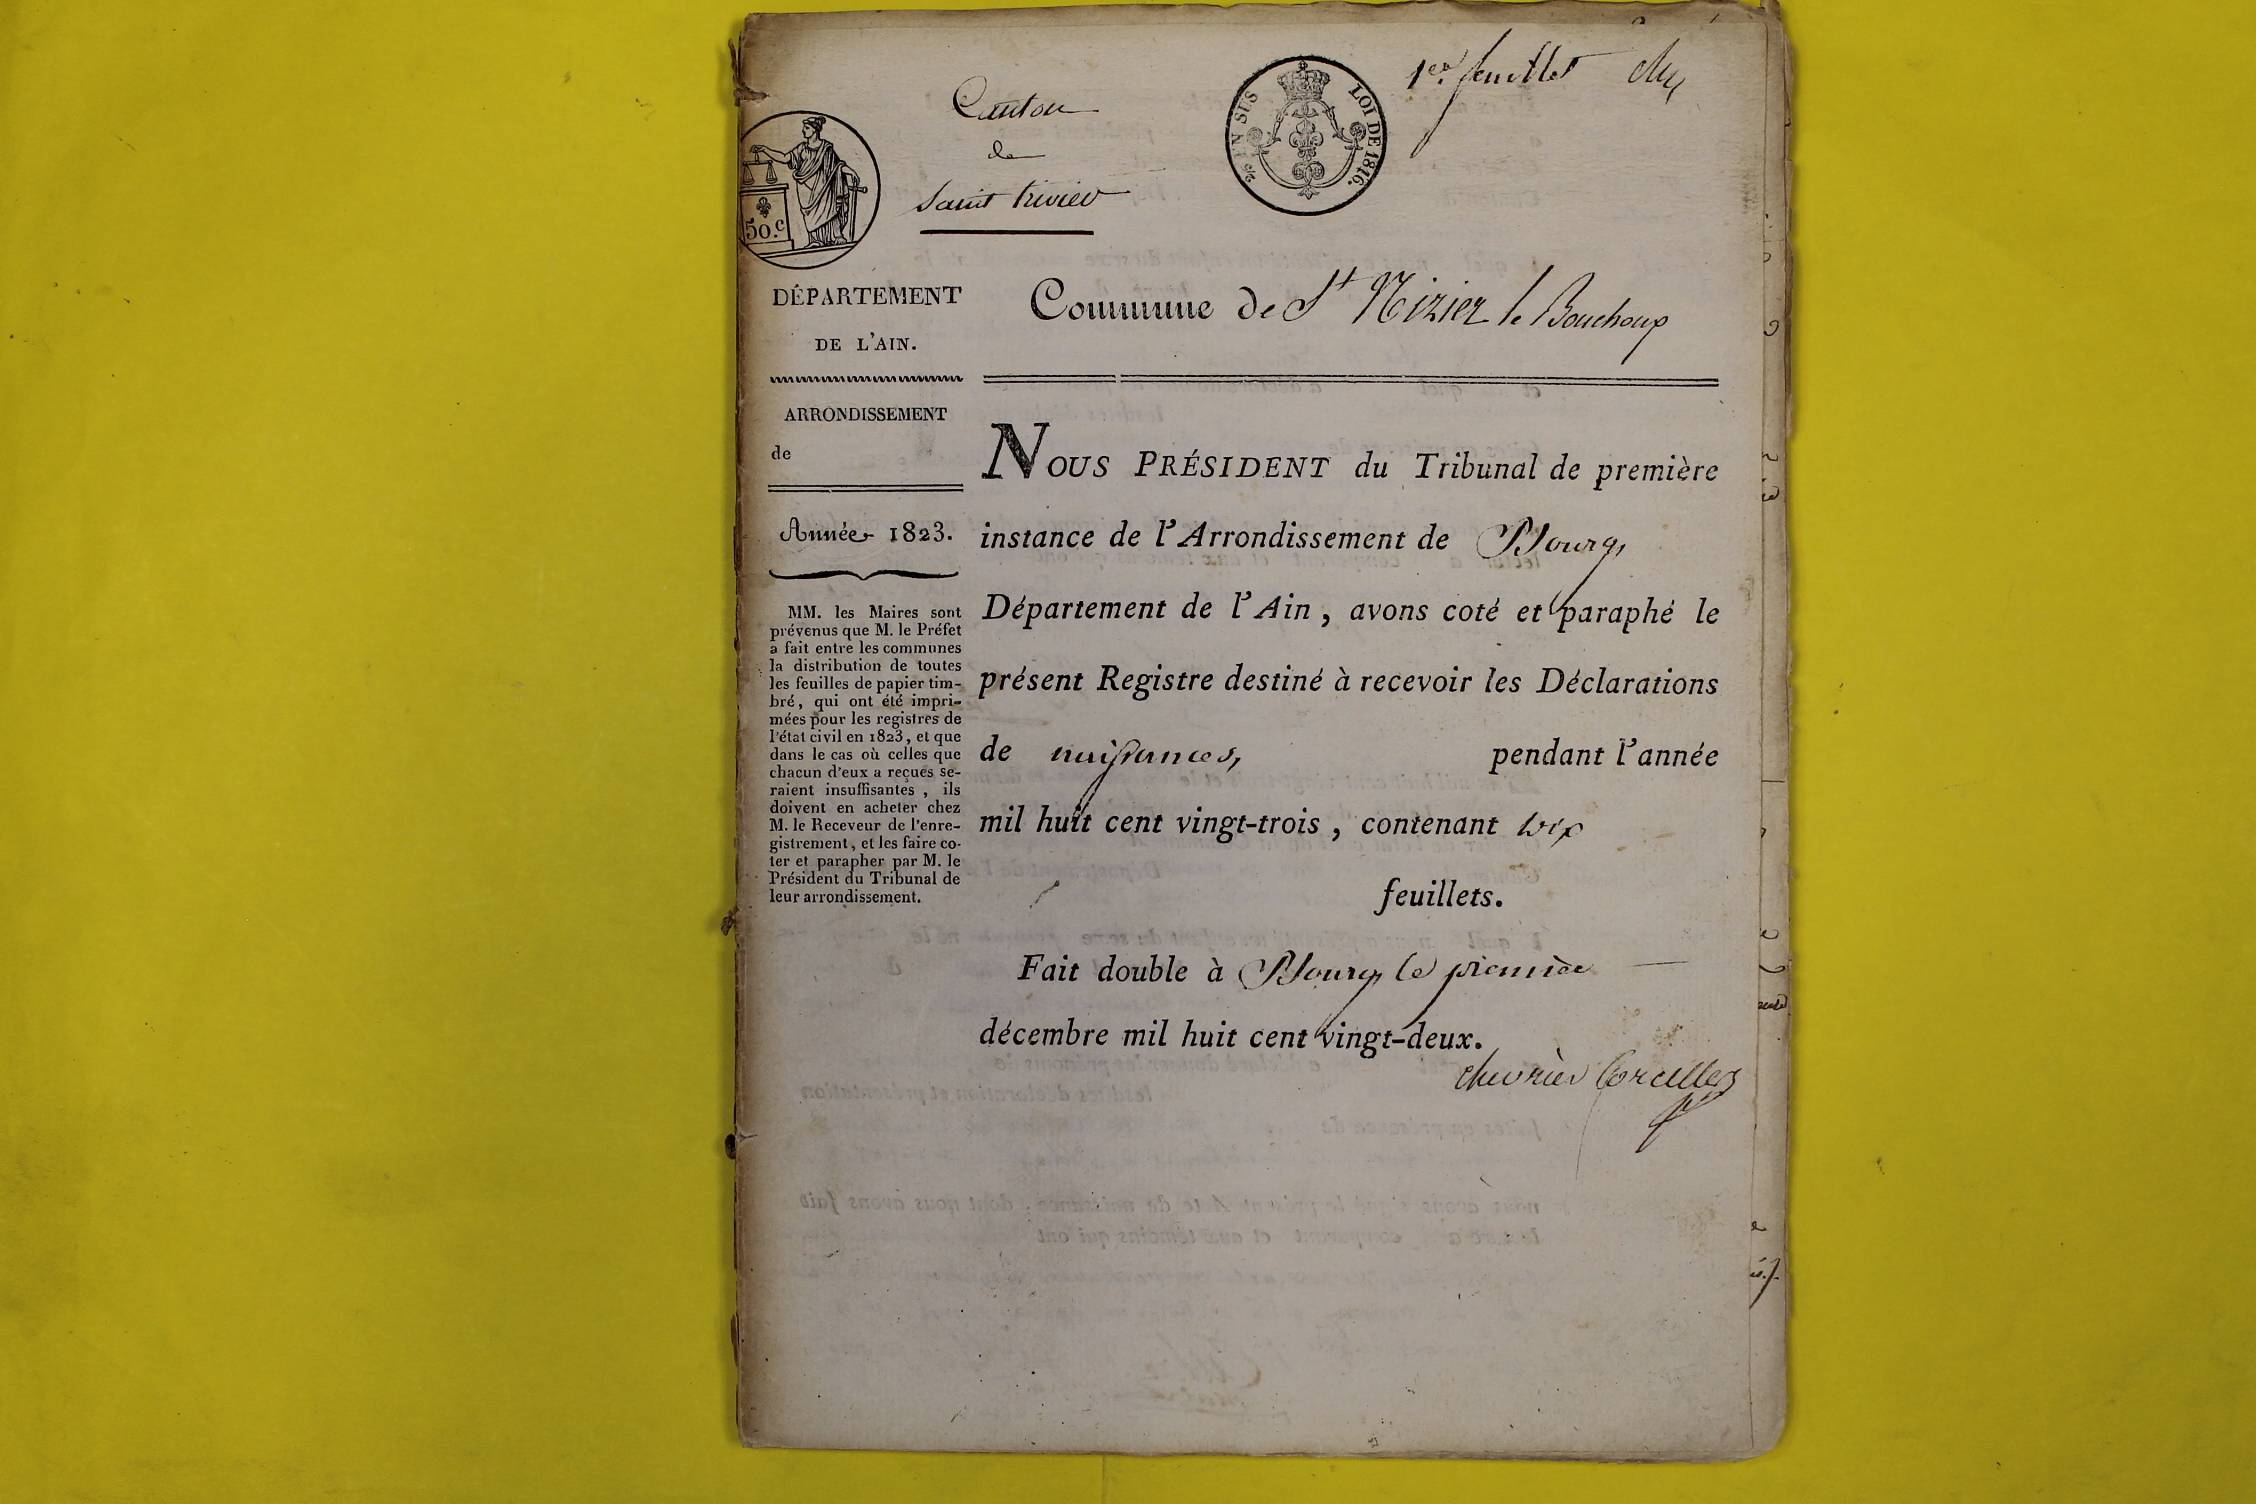 1er feuillet
Canton
de
Saint trivier
EN SUS
LOI DE 1816.
50.c
DÉPARTEMENT
DE L'AIN.
Commune de St Nizier le Bouchoux
ARRONDISSEMENT
de
Année 1823.
MM. les Maires sont
prévenus que M. le Préfet
a fait entre les communes
la distribution de toutes
les feuilles de papier tim-
bré, qui ont été impri-
mées pour les registres de
l'état civil en 1823, et que
dans le cas où celles que
chacun d'eux a reçues se-
raient insuffisantes, ils
doivent en acheter chez
M. le Receveur de l'enre-
gistrement, et les faire co-
ter et parapher par M. le
Président du Tribunal de
leur arrondissement.
NOUS PRÉSIDENT du Tribunal de première
instance de l'Arrondissement de Bourg,
Département de l'Ain, avons coté et paraphé le
présent Registre destiné à recevoir les Déclarations
de naissances, pendant l'année
mil huit cent vingt-trois, contenant
feuillets.
Fait double à Bourg, le premier
décembre mil huit cent vingt-deux.
chevrier Corcelles